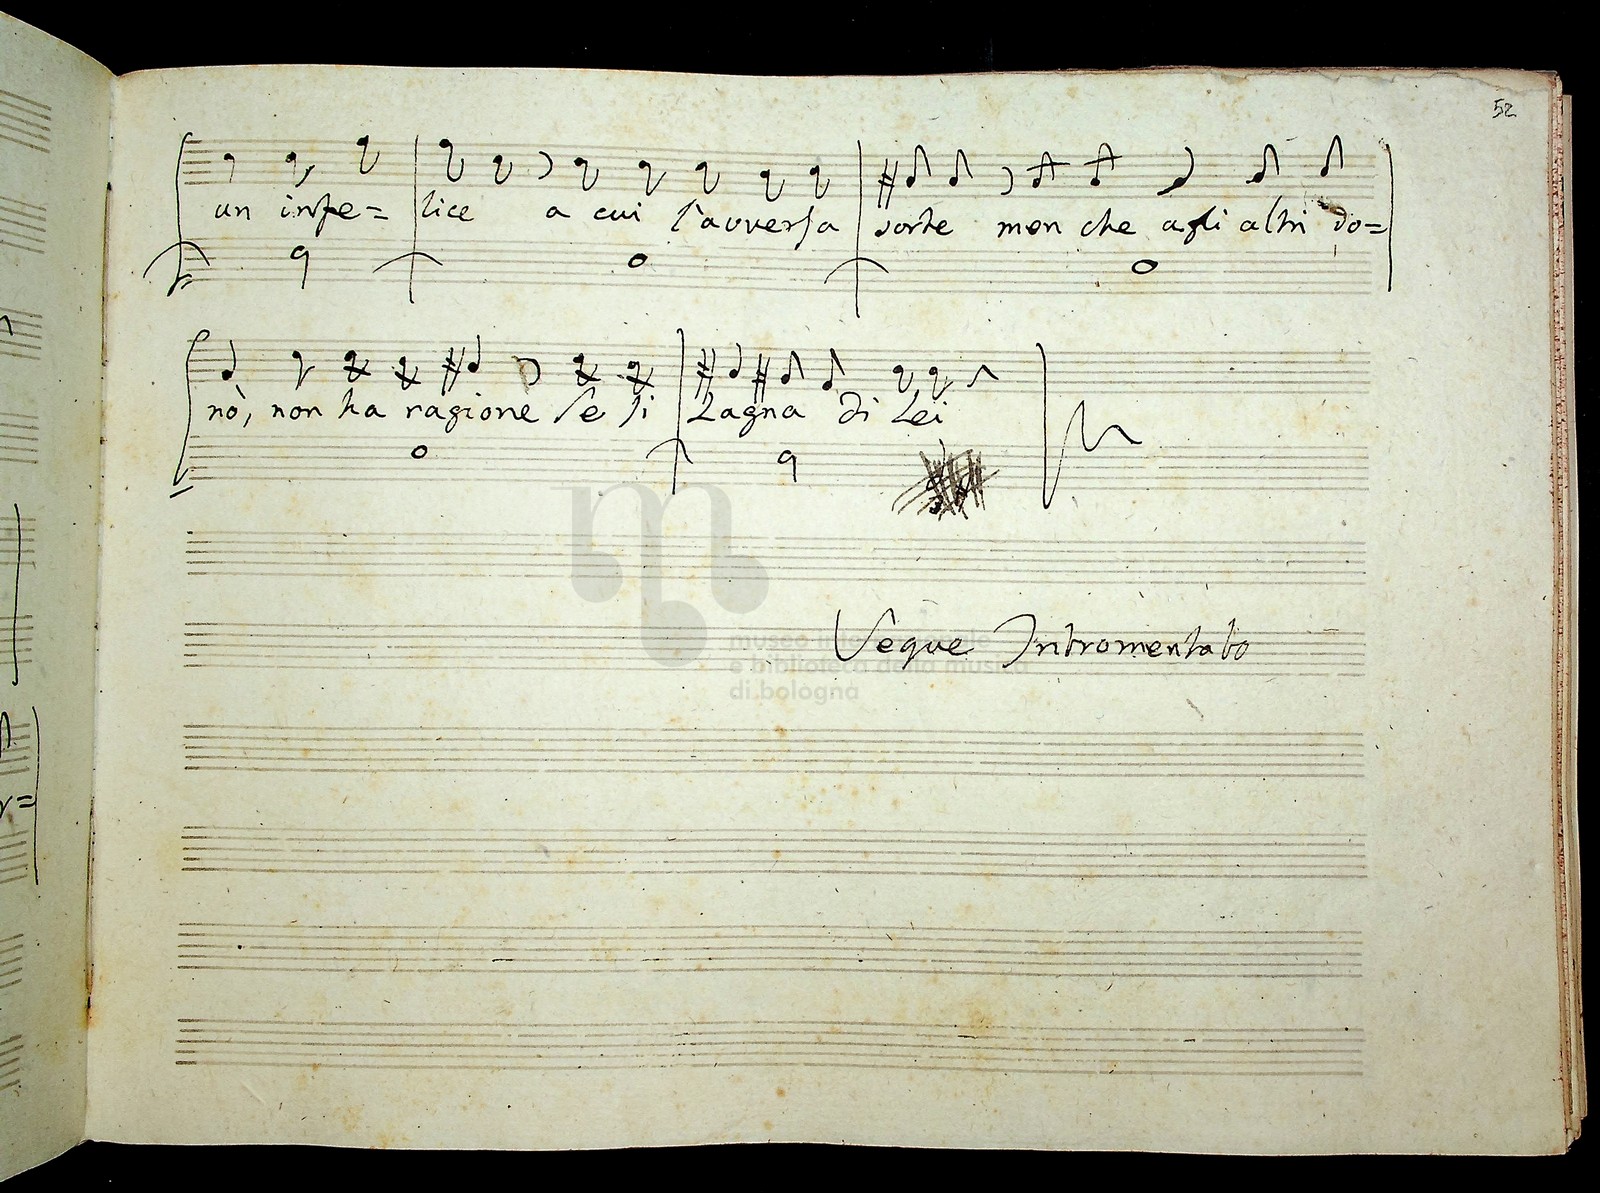 52
un infe= lice a cui l'avversa sorte men che agli altri do=
nò, non ha ragione se si Lagna di Lei
Segue Intromentato
museo internazionale
e biblioteca della musica
di bologna